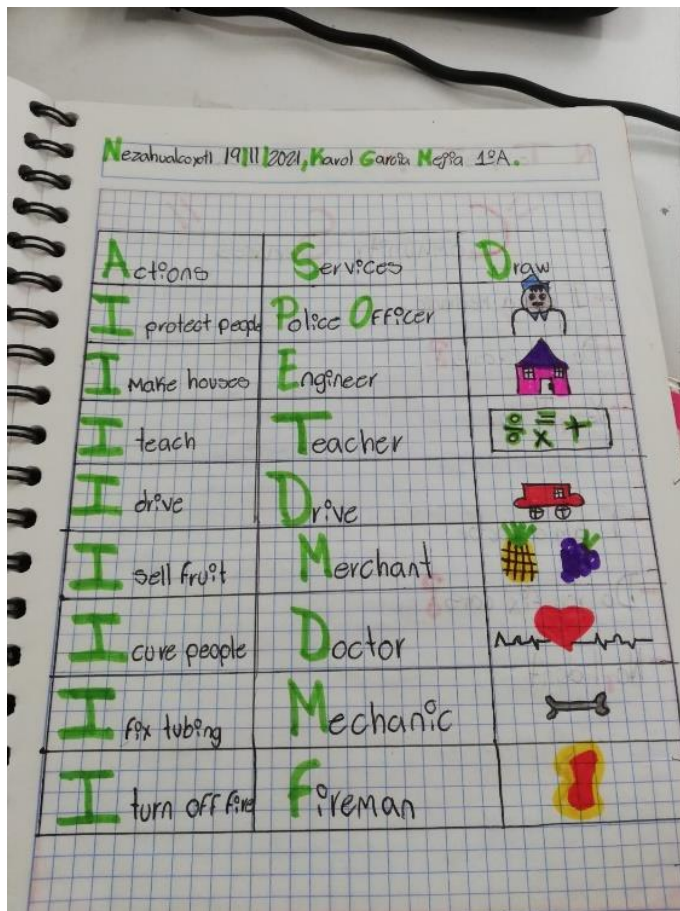 Nezahualcoyotl 19/11/2021, Karol García Mejía 1ºA.
Actions Services Draw
I protect people Police Officer
I Make houses Engineer
I teach Teacher
I drive Drive
I sell fruit Merchant
I cure people Doctor
I fix tubing Mechanic
I turn off fire Fireman